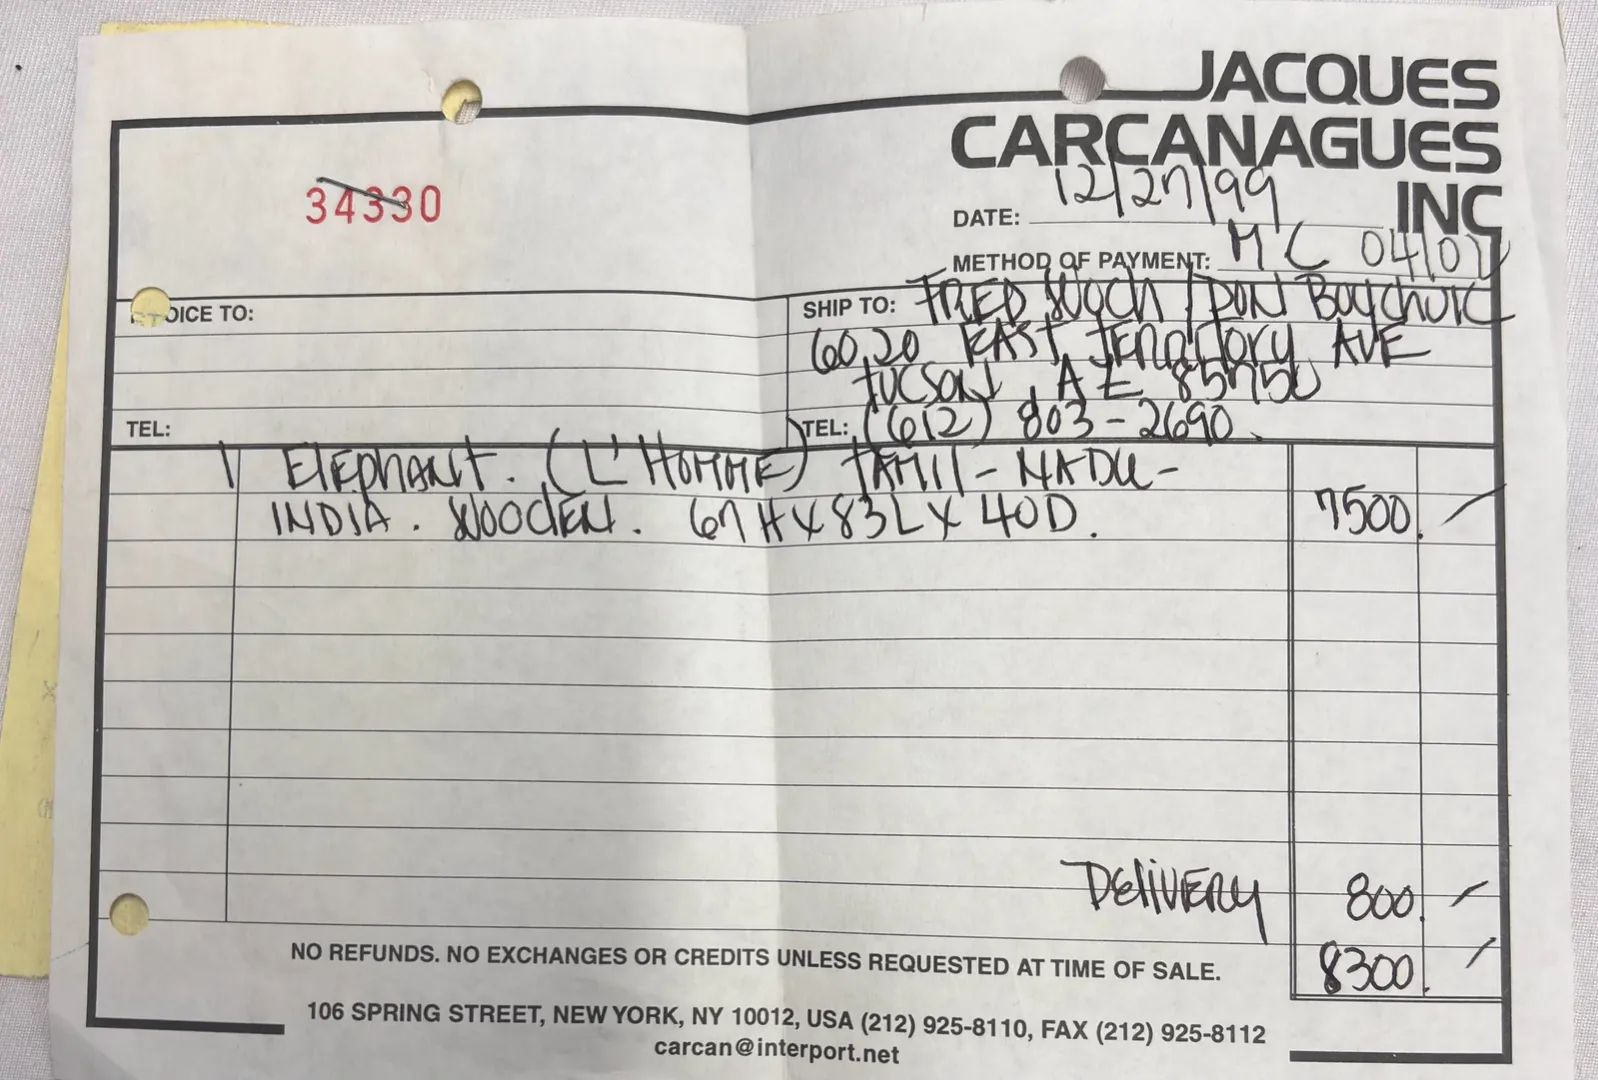 JACQUES
CARCANAGUES
INC
34330
DATE: 12/27/99
METHOD OF PAYMENT: MC 04/01
OICE TO:
TEL:
SHIP TO: FRED / DON Boychuk
6020 EAST Territory AVE
TUCSON, AZ 85750
TEL: (612) 803-2690.
1 ElEphant. (L'HOMME) TAMIL-NADU-
INDIA. WOODEN. 67H X 83L X 40D. 7500. —
DELIVERY 800. —
8300. —
NO REFUNDS. NO EXCHANGES OR CREDITS UNLESS REQUESTED AT TIME OF SALE.
106 SPRING STREET, NEW YORK, NY 10012, USA (212) 925-8110, FAX (212) 925-8112
carcan@interport.net